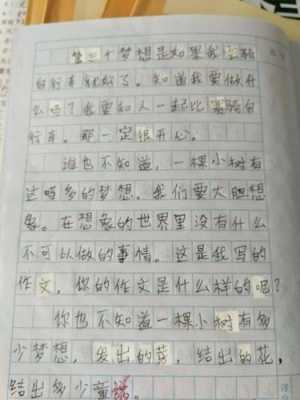 第三个梦想是如果我会骑
自行车就好了。知道我要做什
么吗？我要和人一起比赛骑自
行车。那一定很开心。
谁也不知道，一棵小树有
这么多的梦想。我们要大胆想
象。在想象的世界里没有什么
不可以做的事情。这是我写的
作文，你的作文是什么样的呢？
你也不知道一棵小树有多
少梦想，发出的芽，结出的花，
结出多少童话。